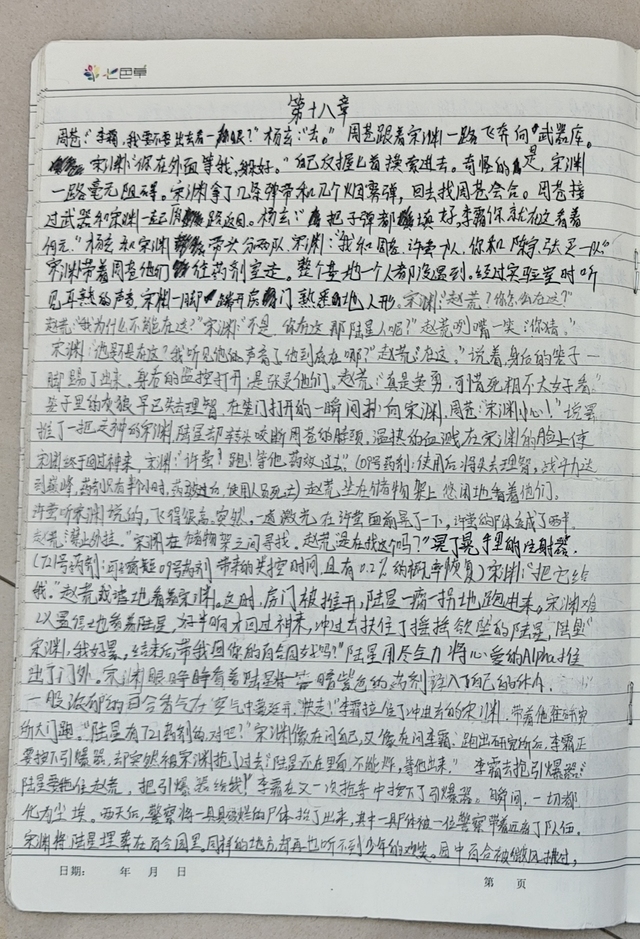 七色草
第十八章
周苍:“李霜,我要不要出去看一眼?”杨玄:“去。”周苍跟着宋渊一路飞奔向武器库。
宋渊:“你在外面等我,躲好。”自己反握匕首摸索进去。奇怪的是,宋渊
一路毫无阻碍。宋渊拿了几条弹带和几个烟雾弹,回去找周苍会合。周苍接
过武器和宋渊一起原路返回。杨玄:“把子弹都填好,李霜你就在这看着
何元。”杨玄和宋渊带头分两队,宋渊:“我和周苍、许萤一队,你和陈宇、张一队”
宋渊带着周苍他们往药剂室走。整个基地一个人都没遇到。经过实验室时听
见耳熟的声音,宋渊一脚踹开房门熟悉的人形。宋渊:“赵荒?你怎么在这?”
赵荒:“我为什么不能在这?”宋渊:“不是,你在这那陆星人呢?”赵荒咧嘴一笑:“你猜。”
宋渊:“他是不是在这?我听见他的声音了他到底在哪?”赵荒:“在这。”说着,身后的笼子一
脚踢了出来。身后的监控打开,是张灵他们。赵荒:“真是英勇,可惜死相不太好看。”
笼子里的灰狼早已失去理智,在笼门打开的一瞬间扑向宋渊,周苍:“宋渊小心!”说罢
推了一把走神的宋渊,陆星却转头咬断周苍的脖颈,温热的血溅在宋渊的脸上使
宋渊终于回过神来,宋渊:“许萤!跑!等他药效过去!(09号药剂:使用后将失去理智,战斗力达
到巅峰,药剂只有半小时,药效过后,使用人员死亡)赵荒坐在储物架上悠闲地看着他们。
许萤听宋渊说的,飞得很高,突然,一道激光在许萤面前晃了一下,许萤的身体变成了两半
赵荒:“禁止外挂。”宋渊在储物架之间寻找。赵荒:“是在找这个吗?”晃了晃手里的注射器。
(721号药剂:可缩短09号药剂带来的失控时间,且有0.2%的概率恢复)宋渊:“把它给
我。”赵荒戏谑地看着宋渊。这时,房门被推开,陆星一瘸一拐地跑出来。宋渊难
以置信地看着陆星,好半晌才回过神来,冲过去扶住了摇摇欲坠的陆星,陆星:“
宋渊,我好累,结束后,带我回你的百合园好吗?”陆星用尽全力将心爱的Alpha推
出了门外。宋渊眼睁睁看着陆星将一管暗紫色的药剂注入了自己的体内。
一股浓郁的百合香气在空气中蔓延开,“快走!”李霜拉住了冲进去的宋渊,带着他往研究
所大门跑。“陆星有721药剂的,对吧?”宋渊像在问自己,又像在问李霜。跑出研究所后,李霜正
要按下引爆器,却突然被宋渊抢了过去:“陆星还在里面,不能炸,等他出来。”李霜去抢引爆器:“
陆星要拖住赵荒,把引爆器给我!”李霜在又一次抢夺中按下了引爆器。瞬间,一切都
化为尘埃。两天后,警察将一具具破烂的尸体抬了出来,其中一具尸体被一位警察带着远离了队伍。
宋渊将陆星埋葬在百合园里。同样的地方,却再也听不到少年的欢笑。园中百合被微风拂过,
日期: 年 月 日
第 页